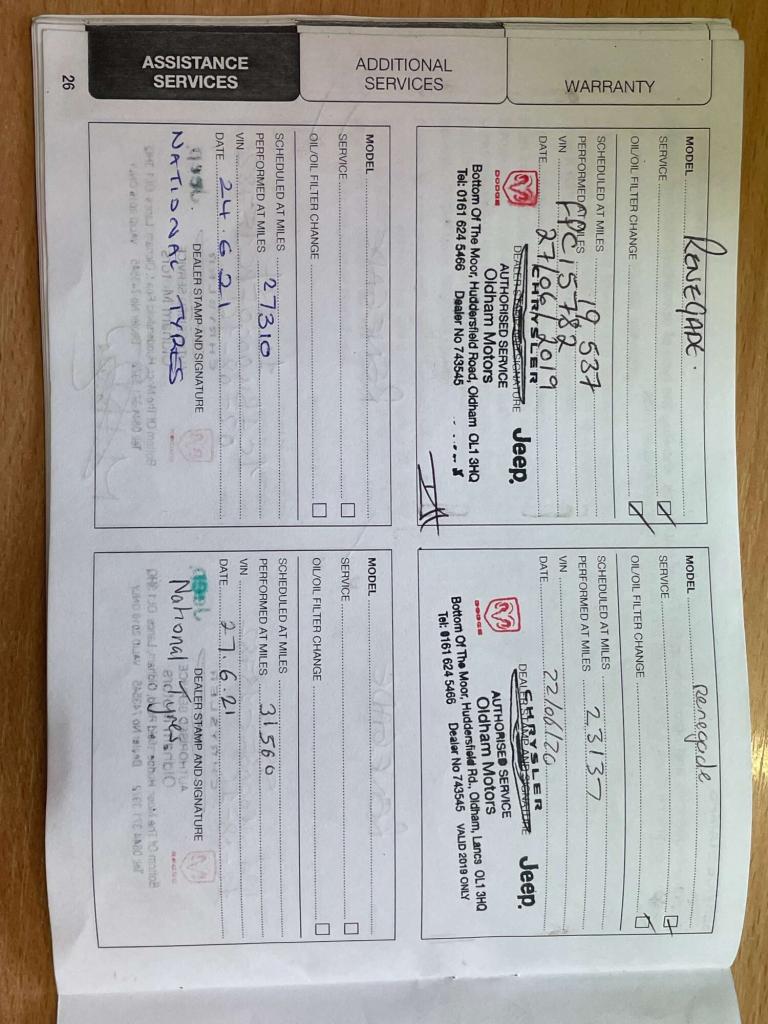 WARRANTY
ADDITIONAL
SERVICES
ASSISTANCE
SERVICES
MODEL RENEGADE.
SERVICE
OIL/OIL FILTER CHANGE
SCHEDULED AT MILES
PERFORMED AT MILES 19 537
VIN FPC15782
DATE 27/06/2019
DEALER STAMP AND SIGNATURE
CHRYSLER
Jeep.
DODGE
AUTHORISED SERVICE
Oldham Motors
Bottom Of The Moor, Huddersfield Road, Oldham OL1 3HQ
Tel: 0161 624 5466 Dealer No 743545
MODEL Renegade
SERVICE
OIL/OIL FILTER CHANGE
SCHEDULED AT MILES
PERFORMED AT MILES 23137
VIN
DATE 22/06/20
DEALER STAMP AND SIGNATURE
CHRYSLER
Jeep.
DODGE
AUTHORISED SERVICE
Oldham Motors
Bottom Of The Moor, Huddersfield Rd., Oldham, Lancs OL1 3HQ
Tel: 0161 624 5466 Dealer No 743545 VALID 2019 ONLY
MODEL
SERVICE
OIL/OIL FILTER CHANGE
SCHEDULED AT MILES
PERFORMED AT MILES 27310
VIN
DATE 24.6.21
DEALER STAMP AND SIGNATURE
NATIONAL TYRES
MODEL
SERVICE
OIL/OIL FILTER CHANGE
SCHEDULED AT MILES
PERFORMED AT MILES 31560
VIN
DATE 27.6.21
DEALER STAMP AND SIGNATURE
National Tyres
26